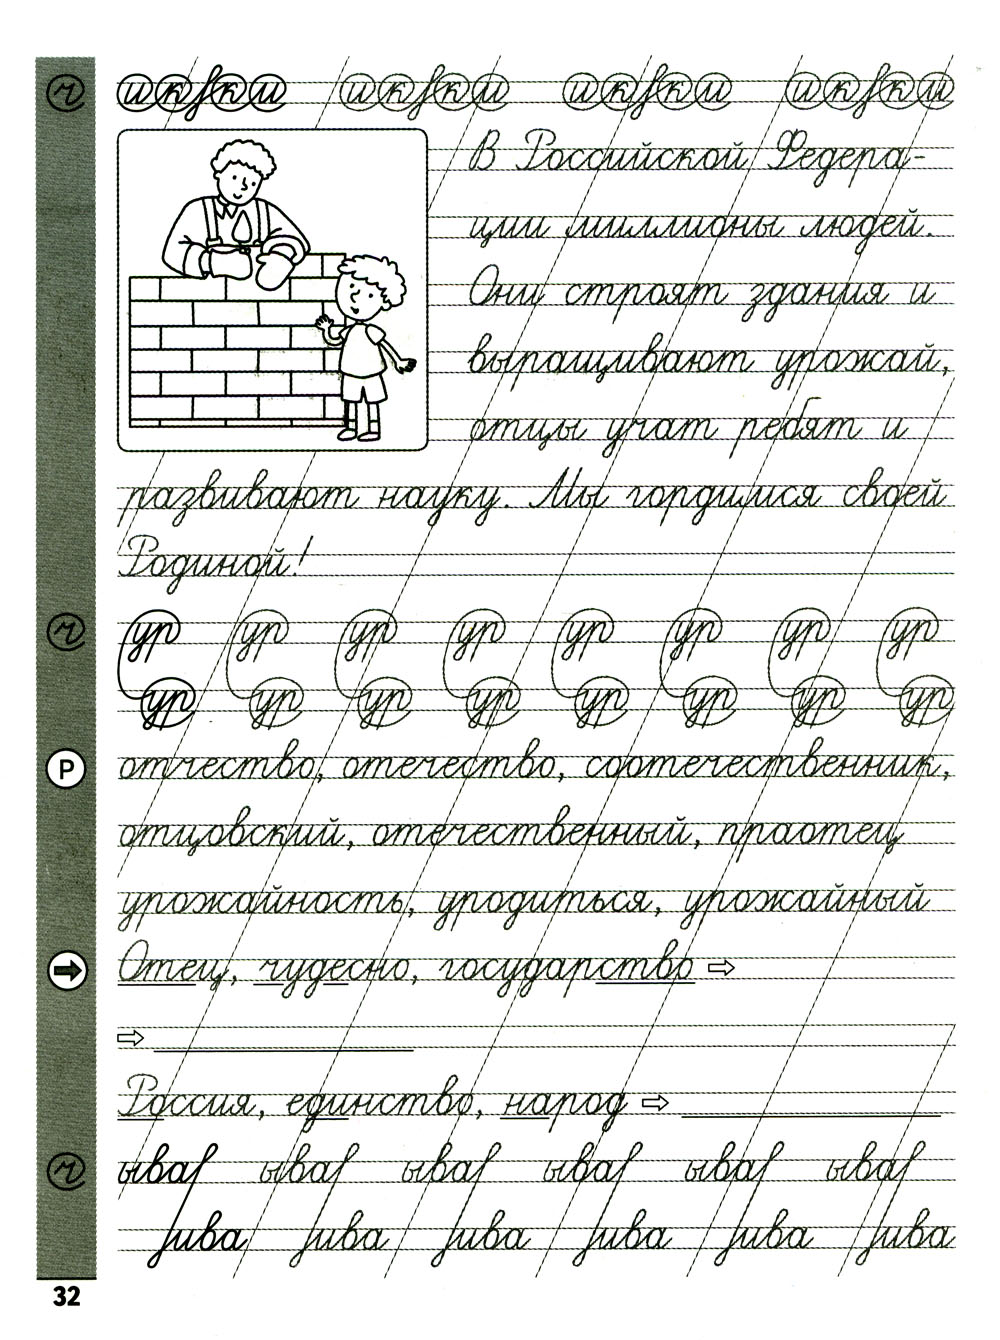 ч икки икки икки икки
В Российской Федера-
ции миллионы людей.
Они строят здания и
выращивают урожай,
отцы учат ребят и
развивают науку. Мы гордимся своей
Родиной!
ч ур ур ур ур ур ур ур ур
ур ур ур ур ур ур ур ур
Р отчество, отечество, соотечественник,
отцовский, отечественный, праотец
урожайность, уродиться, урожайный
➡ Отец, чудесно, государство ⇨
⇨
Россия, единство, народ ⇨
ч ыва ыва ыва ыва ыва ыва
ива ива ива ива ива ива
32